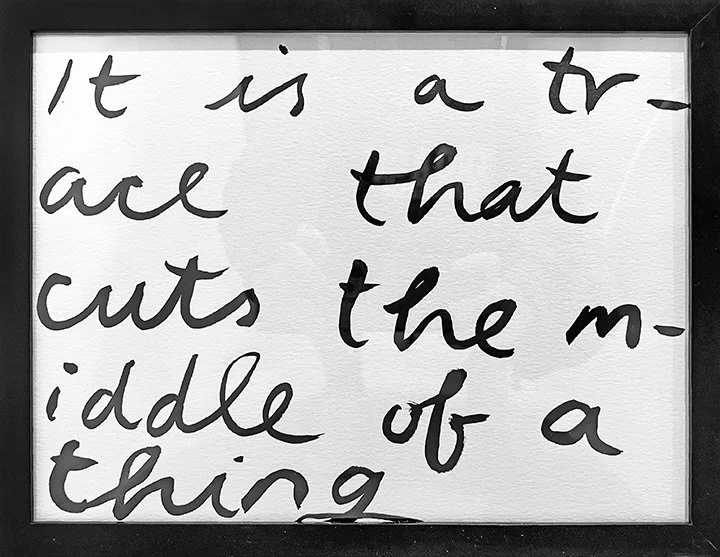 It is a tr-
ace that
cuts the m-
iddle of a
thing